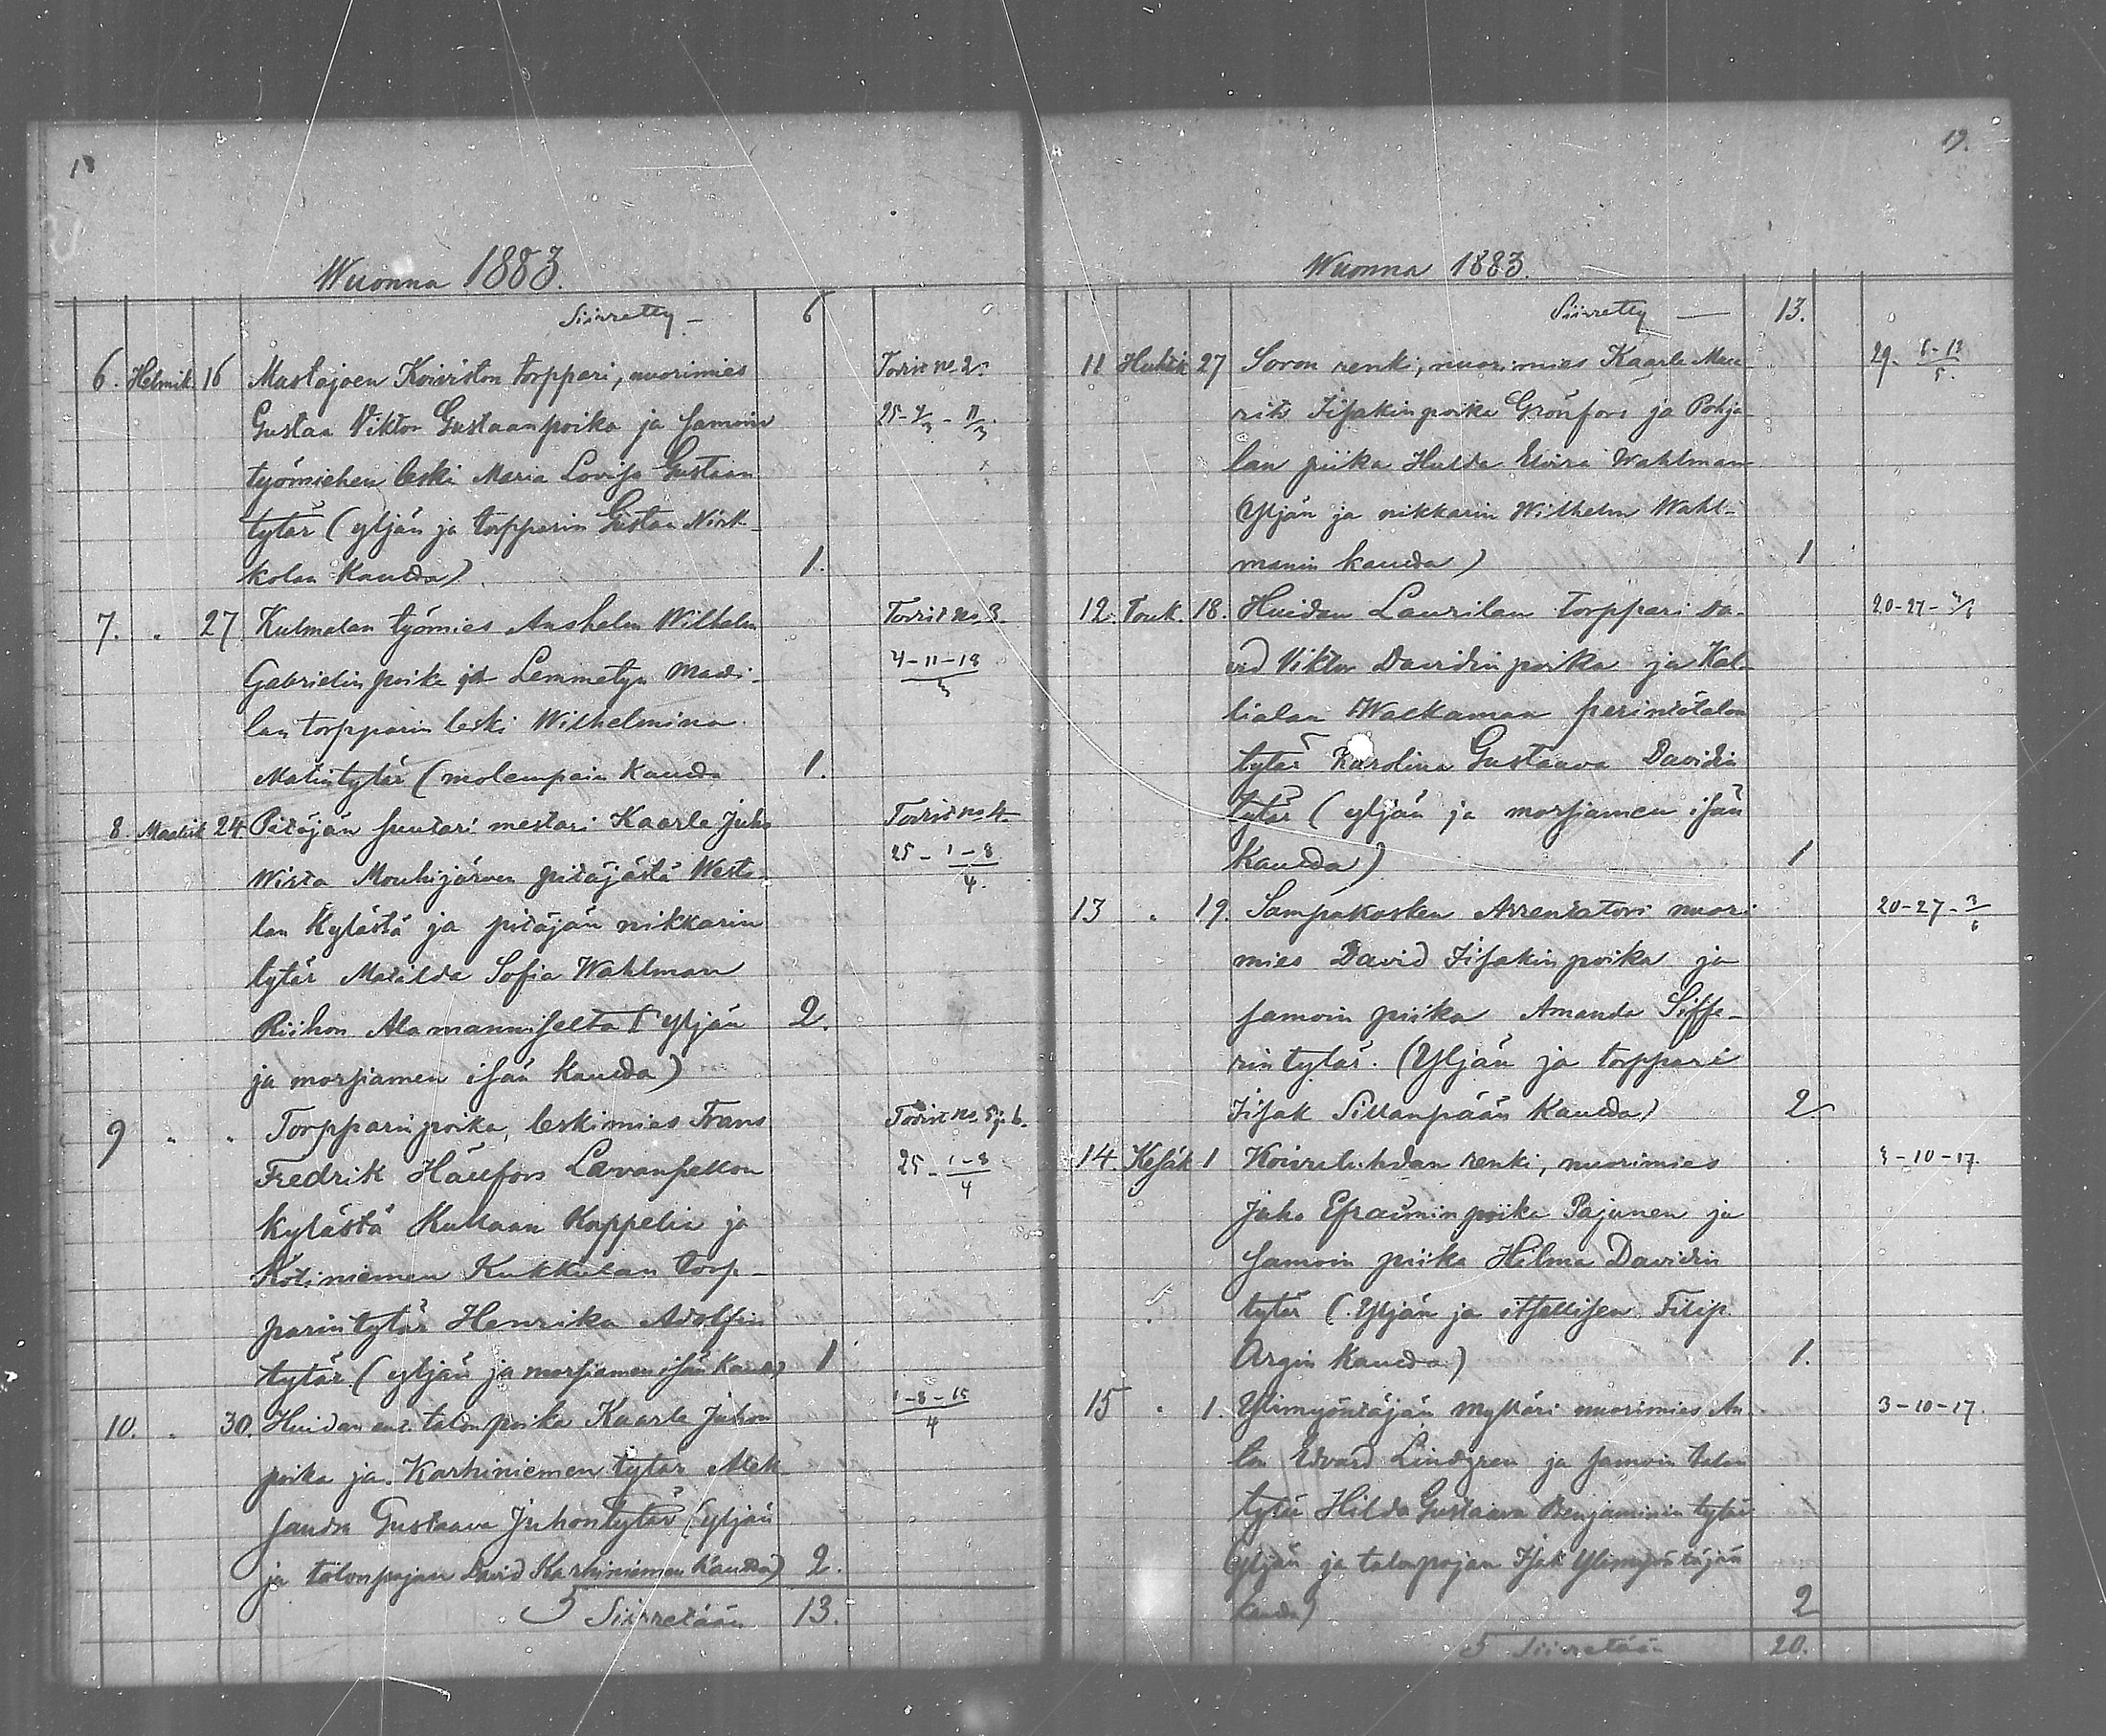 18
Wuonna 1883.
Siirretty — 6
6. Helmik. 16 Mustajoen Koiviston torppari, nuorimies Todist no. 2.
Gustaa Viktor Gustaanpoika ja samoin 25-4/3-11/3
työmiehen leski Maria Lovisa Gustaan
tytär (yljän ja torpparin Gustaa
kolan kautta) 1.
7. " 27 Kulmalan työmies Anshelm Wilhelm Todist no. 3.
Gabrielin poika ja Lemmetyn 4-11-18/3
lan torpparin leski Wilhelmina
Matintytär (molempain kautta 1.
8. Maalisk 24 Pitäjän suutari mestari Kaarle Juho Todist no 4
Wista Mouhijärven pitäjästä West- 25-1-8/4.
lan kylästä ja pitäjän nikkarin
tytär Matilda Sofia Wahlman
Riihon Alamanniselta (Yljän 2.
ja morsiamen isän kautta)
9 " " Torpparin poika, leskimies Frans Todist no 5 ja 6.
Fredrik Hällfors Levanpellon 25-1-8/4
kylästä Kullaan Kappelia ja
Kotiniemen Kukkulan torp-
parintytär Henrika Adolfin
tytär (yljän ja morsiamen isän kautta) 1
10. " 30. Huidan ent. talon poika Kaarle Juhon 1-8-15/4
poika ja Karhiniemen tytär Alek-
sandra Gustaava Juhontytär (yljän
ja talonpojan David Karhiniemen kautta) 2.
5 Siirretään 13.
19.
Wuonna 1883.
Siirretty — 13.
11 Huhtik 27 Soron renki, nuorimies Kaarle Mau- 29-6-12/5.
rits Iisakinpoika Grönfors ja Pohja-
lan piika Hulda Elvira Wahlman
(Yljän ja nikkarin Wilhelm Wahl-
manin kautta) 1
12. Touk. 18. Huidan Laurilan torppari Da- 20-27-3/6
vid Viktor Davidin poika ja Kal-
lialan Walkaman perintötalon
tytär Karolina Gustaava Davidin
tytär (yljän ja morsiamen isän
kautta) 1
13 " 19. Sampakosken Arrentatori nuori 20-27-3/6
mies David Iisakin poika ja
samoin piika Amanda Siffe-
rin tytär. (Yljän ja torppari
Iisak Sillanpään kautta) 2
14. Kesäk 1 Koivulahdan renki, nuorimies 3-10-17.
Juho Efraimin poika Pajunen ja
samoin piika Hilma Davidin
tytär (Yljän ja itsellisen Filip
Argin kautta) 1.
15 " 1. Ylimyöntäjän mylläri nuorimies An- 3-10-17.
ton Edvard Lindgren ja samoin talon
tytär Hilda Gustaava Benjaminin tytär
(yljän ja talonpojan Isak Ylimyöntäjän
kautta) 2
5 Siirretään 20.